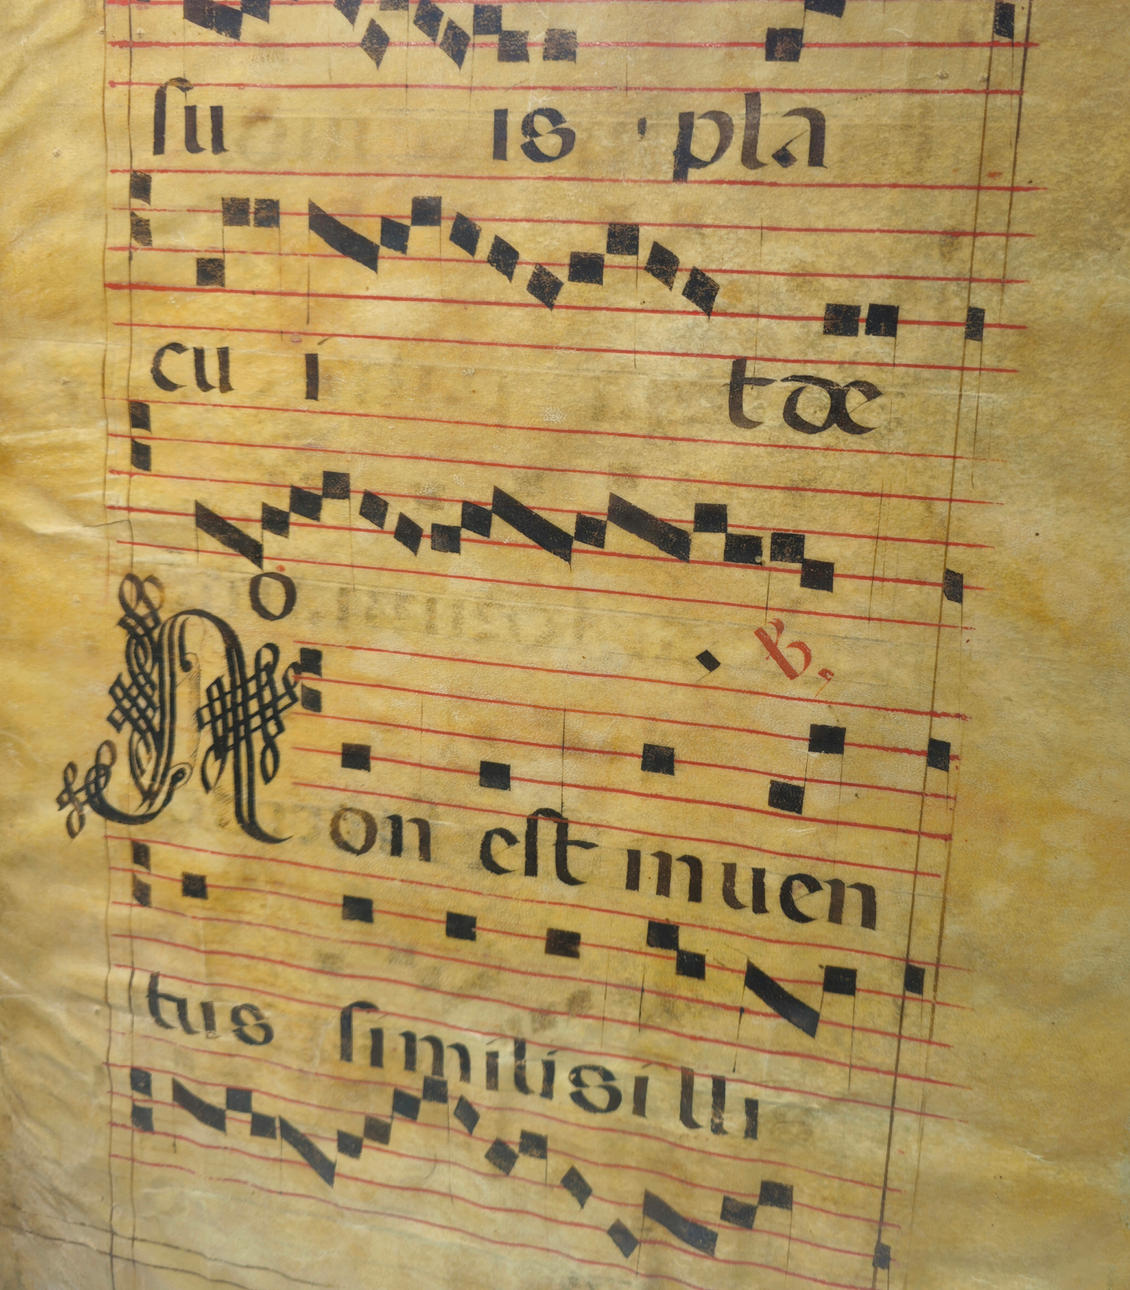 ſu is pla
cu i tæ
o ℟.
Non eſt inuen
tus ſimilis illi